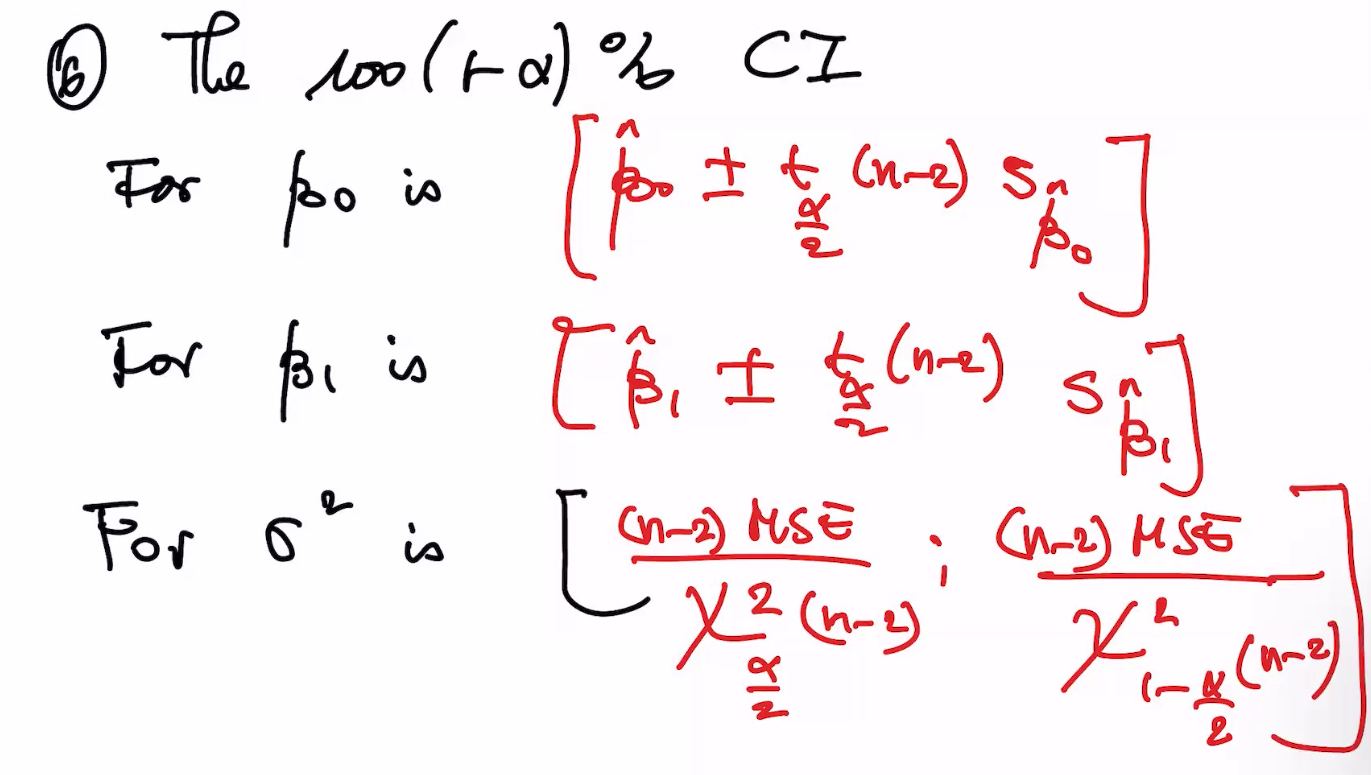 ⑥ The 100(1-α)% CI
For β₀ is [β̂₀ ± t_{α/2}(n-2) S_{β̂₀}]
For β₁ is [β̂₁ ± t_{α/2}(n-2) S_{β̂₁}]
For σ² is [(n-2) MSE / χ²_{α/2}(n-2) ; (n-2) MSE / χ²_{1-α/2}(n-2)]